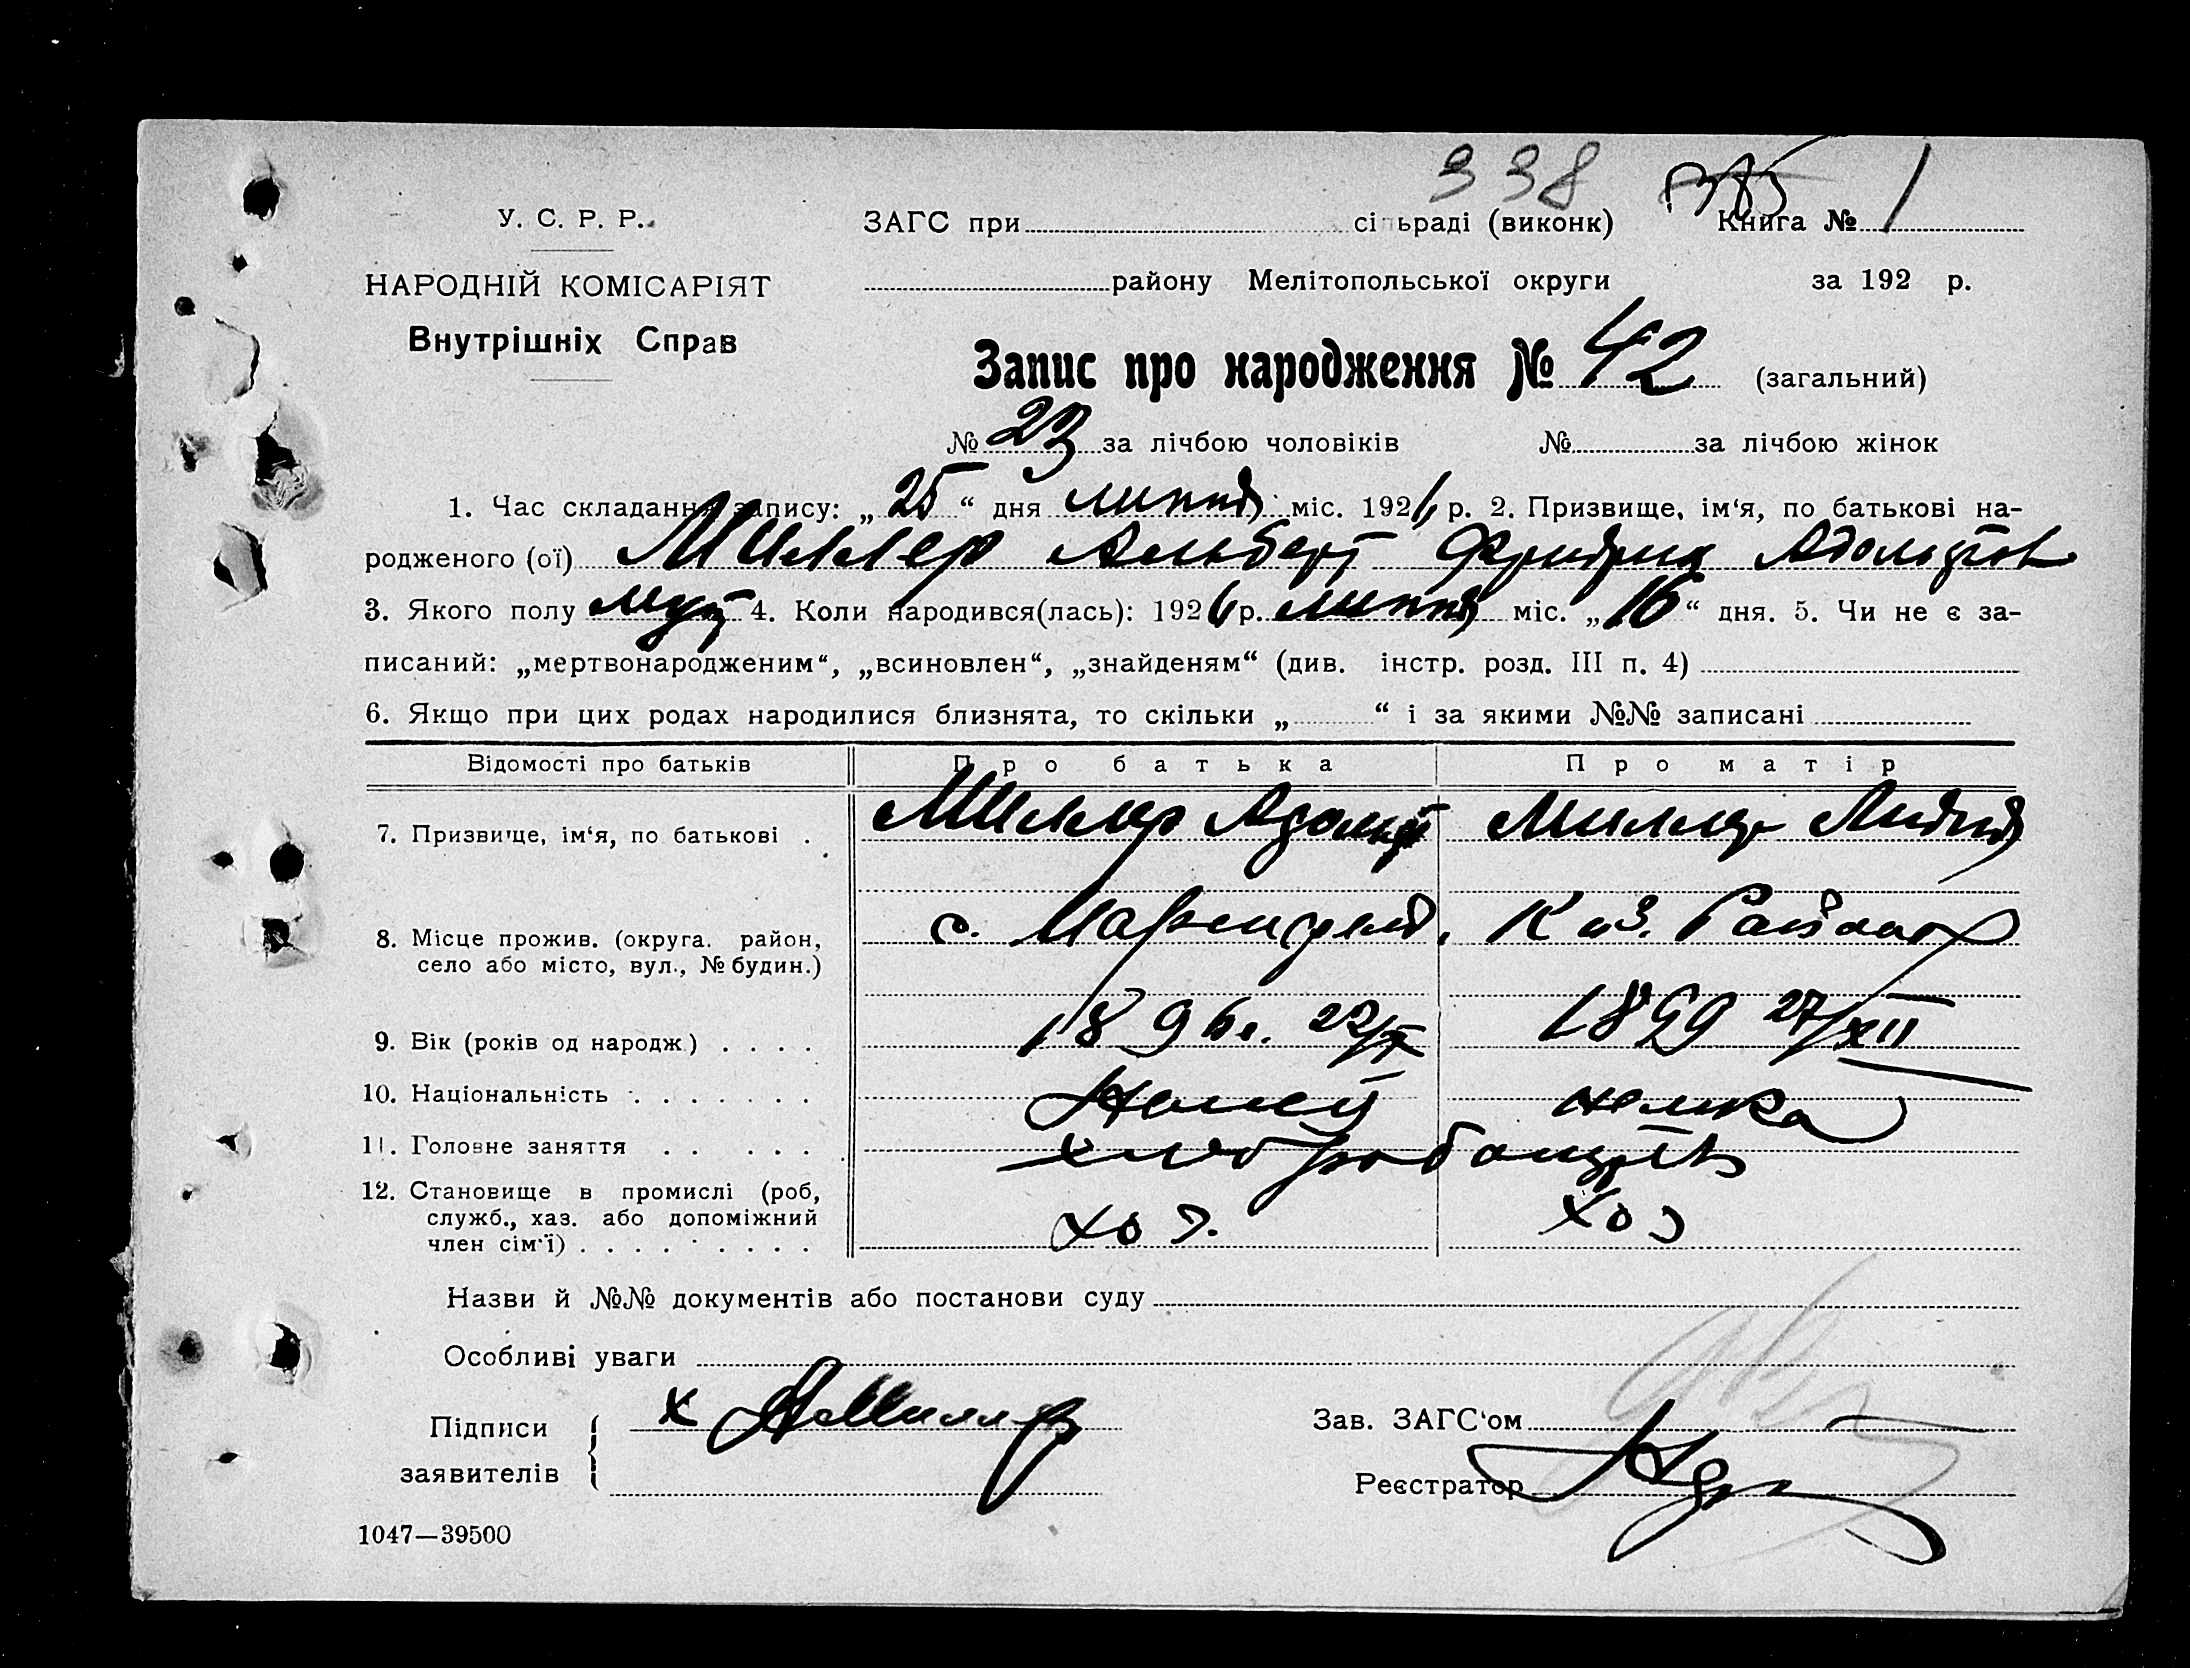 338 385
У. С. Р. Р. ЗАГС при сільраді (виконк) Книга № 1
НАРОДНІЙ КОМІСАРІЯТ району Мелітопольської округи за 192 р.
Внутрішніх Справ
Запис про народження № 42 (загальний)
№ 23 за лічбою чоловіків № за лічбою жінок
1. Час складання запису: „ 25 “ дня липня міс. 1926 р. 2. Призвище, ім‘я, по батькові на-
родженого (ої) Миллер Альберт Фридрих Адольфов
3. Якого полу муж 4. Коли народився(лась): 1926 р. липня міс. „ 16 “ дня. 5. Чи не є за-
писаний: „мертвонародженим“, „всиновлен“, „знайденям“ (див. інстр. розд. III п. 4)
6. Якщо при цих родах народилися близнята, то скільки „ “ і за якими №№ записані
Відомості про батьків Про батька Про матір
7. Призвище, ім‘я, по батькові . Миллер Адольф Миллер Лидия
8. Місце прожив. (округа. район, с.
село або місто, вул., № будин.)
9. Вік (років од народж.) . . . . 1896 г. 1899 27/XII
10. Національність . . . . . . . Немец немка
11. Головне заняття . . . . . . хлеборобанцтв
12. Становище в промислі (роб,
служб., хаз. або допоміжний хоз. хоз
член сім‘ї) . . . . . . . . .
Назви й №№ документів або постанови суду
Особливі уваги
Підписи х А Миллер Зав. ЗАГС‘ом
заявителів Реєстратор
1047—39500